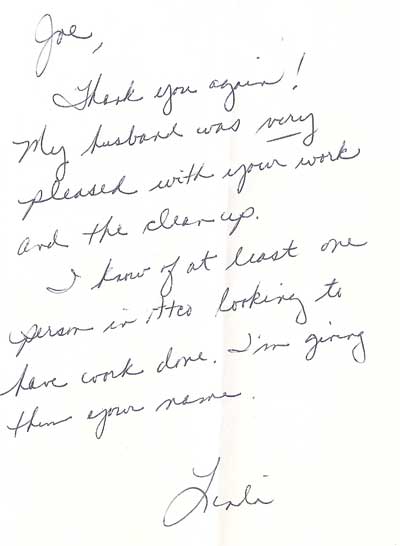 Joe,
Thank you again!
My husband was very
pleased with your work
and the clean up.
I know of at least one
person in looking to
have work done. I'm giving
them your name.